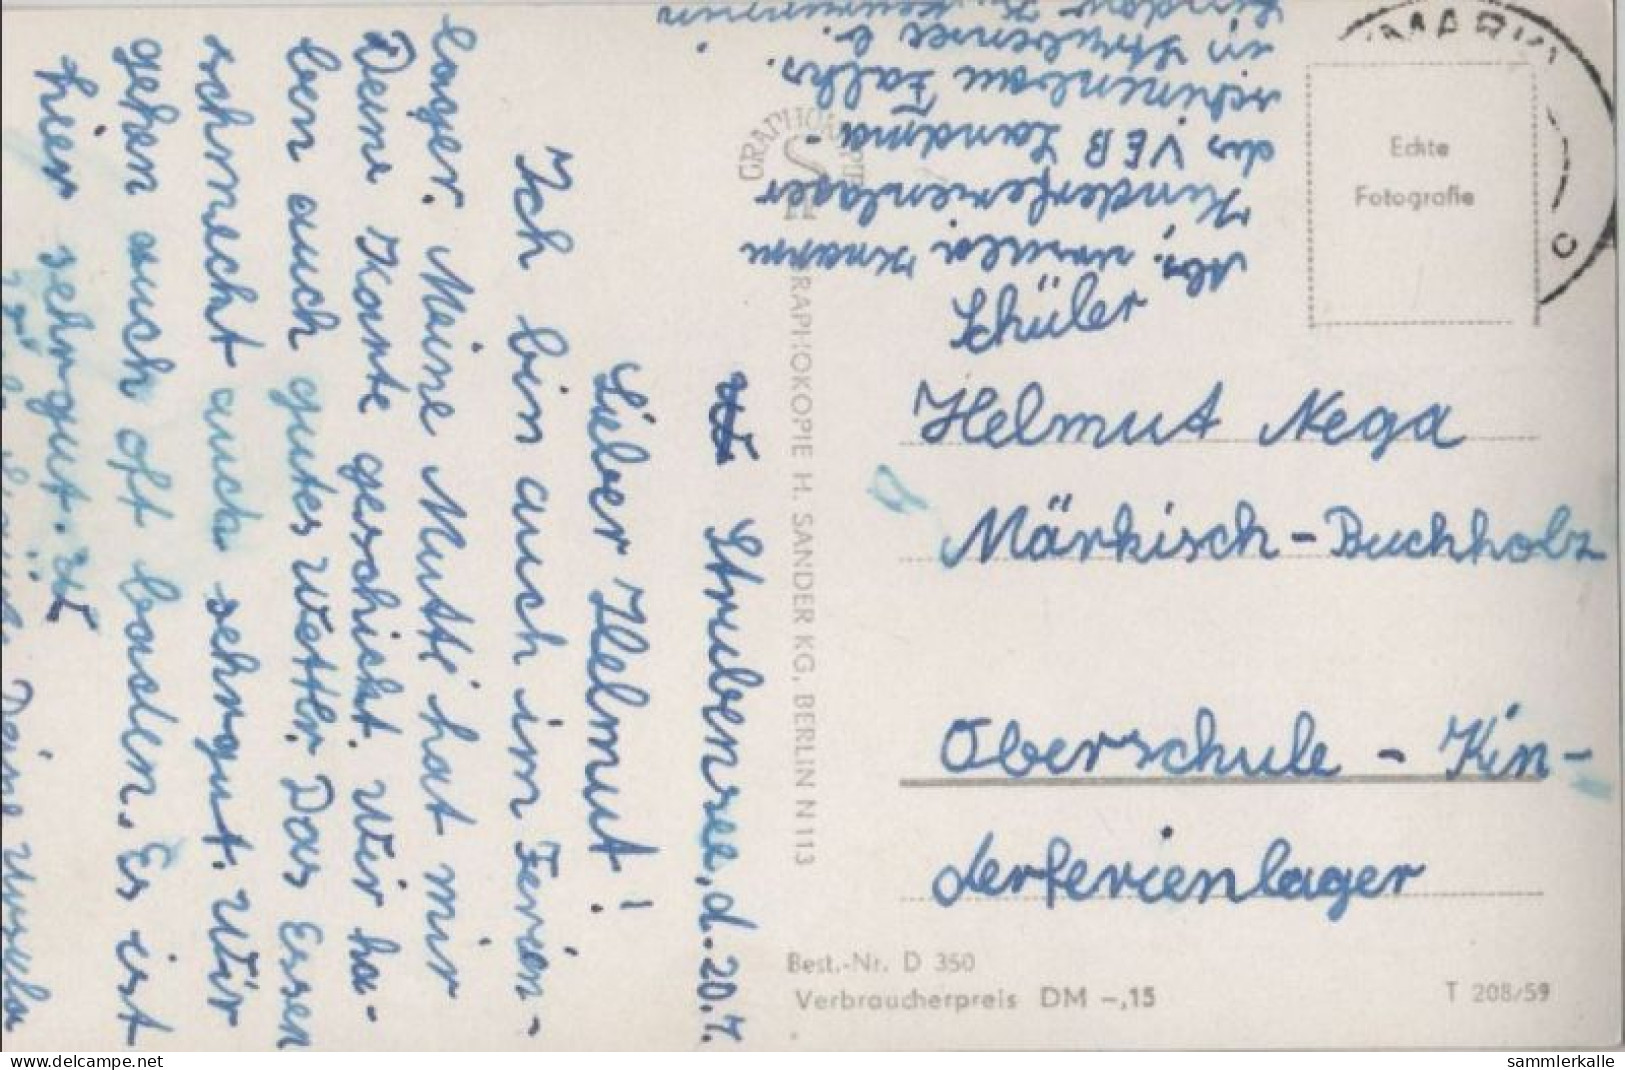 Strubensee, d. 20.7.
Lieber Helmut!
Ich bin auch im Ferien-
lager. Meine Mutti hat mir
Deine Karte geschickt. Wir ha-
ben auch gutes Wetter. Das Essen
schmeckt auch sehr gut. Wir
gehen auch oft baden. Es ist
hier sehr gut.
Deine Ursula
Abs. Ursula Knapp
Kinderferienlager
des VEB Landma-
schinenbau Falks.
in Strubensee b.
Lindow Kr.
GRAPHOKOPIE H. SANDER KG, BERLIN N 113
Echte
Fotografie
Schüler
Helmut Nega
Märkisch-Buchholz
Oberschule - Kin-
derferienlager
Best.-Nr. D 350
Verbraucherpreis DM -,15
T 208/59
delcampe.net
sammlerkalle